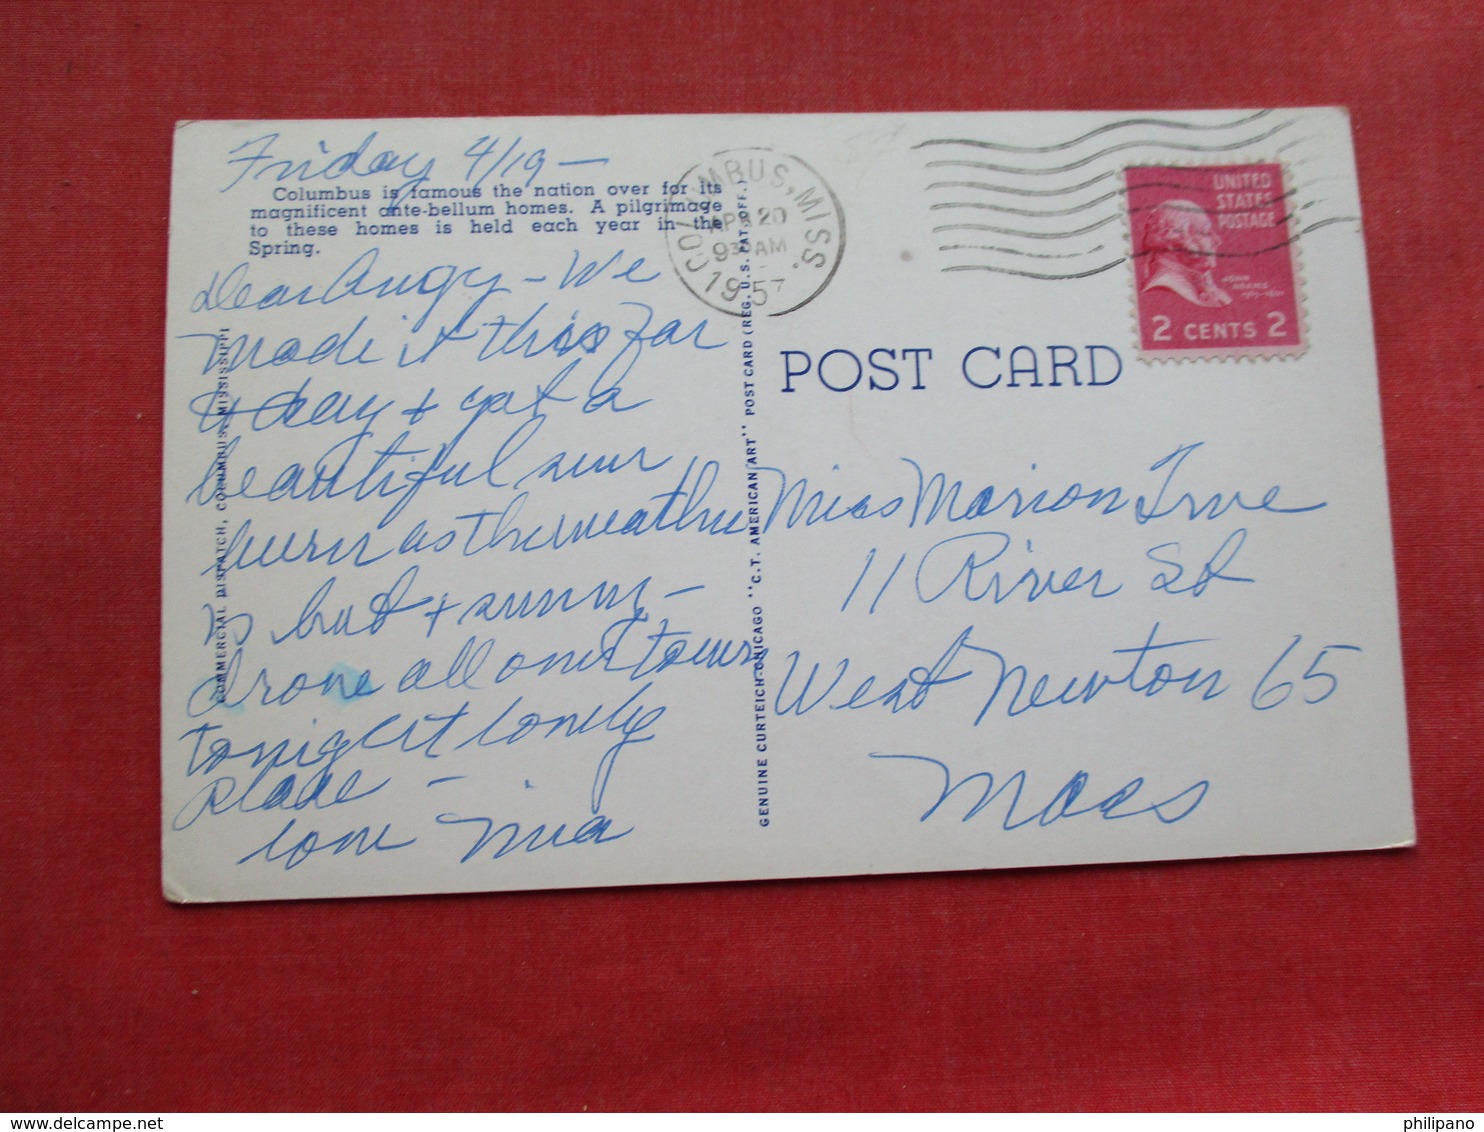 Friday 4/19 —
Columbus is famous the nation over for its
magnificent ante-bellum homes. A pilgrimage
to these homes is held each year in the
Spring.
Dear Angy — We
made it this far
today + got a
beautiful sun
burn as the weather
is hot + sunny —
drove all over town
tonight lovely
place —
love Mia
COMMERCIAL DISPATCH, COLUMBUS, MISSISSIPPI
GENUINE CURTEICH-CHICAGO "C.T. AMERICAN ART" POST CARD (REG. U.S. PAT. OFF.)
COLUMBUS, MISS.
APR 20
930 AM
1957
UNITED
STATES
POSTAGE
JOHN
ADAMS
2 CENTS 2
POST CARD
Miss Marion True
11 River St
West Newton 65
Mass
www.delcampe.net
philipano